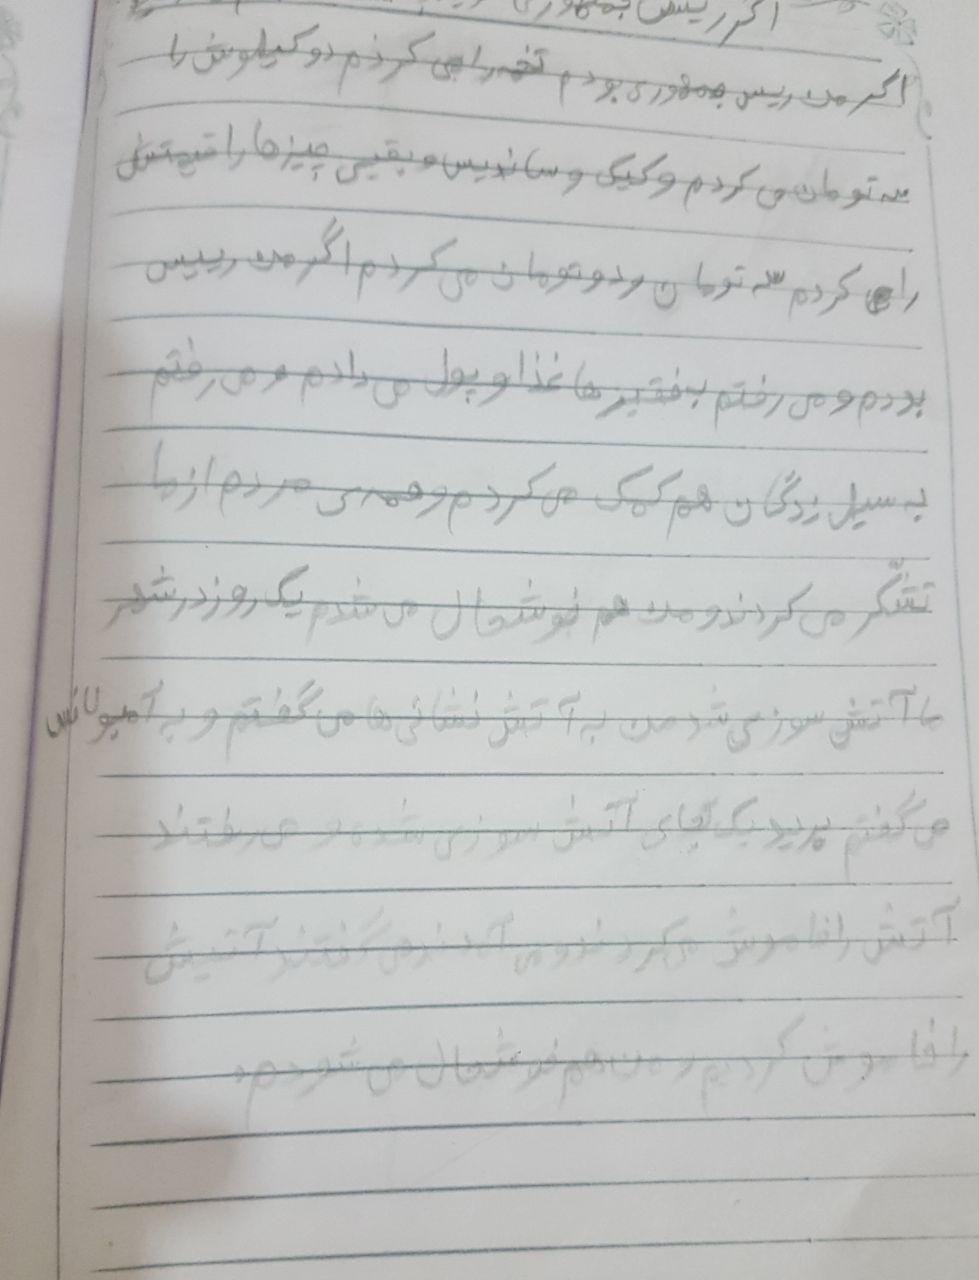 اگر رییس جمهوری
اگر من رییس جمهوری بودم تخمه را می کردم دو کیلوش را
سه تومان می کردم و کیک و ساندیس و بقیی چیزها را قیمتش
را می کردم سه تومان و دو تومان می کردم اگر من رییس
بودم و می رفتم به فقیرها غذا و پول می دادم و می رفتم
به سیل زدگان هم کمک می کردم و همه ی مردم از ما
تشکّر می کردند و من هم خوشحال می شدم یک روز در شهر
ما آتش سوزی شد من به آتش نشانی ها می گفتم و به آمبولانس
می گفتم برید یک جای آتش سوزی شده و می رفتند
آتش را خاموش می کردند و می آمدند می گفتند آتیش
را خاموش کردیم و من هم خوشحال می شودم.